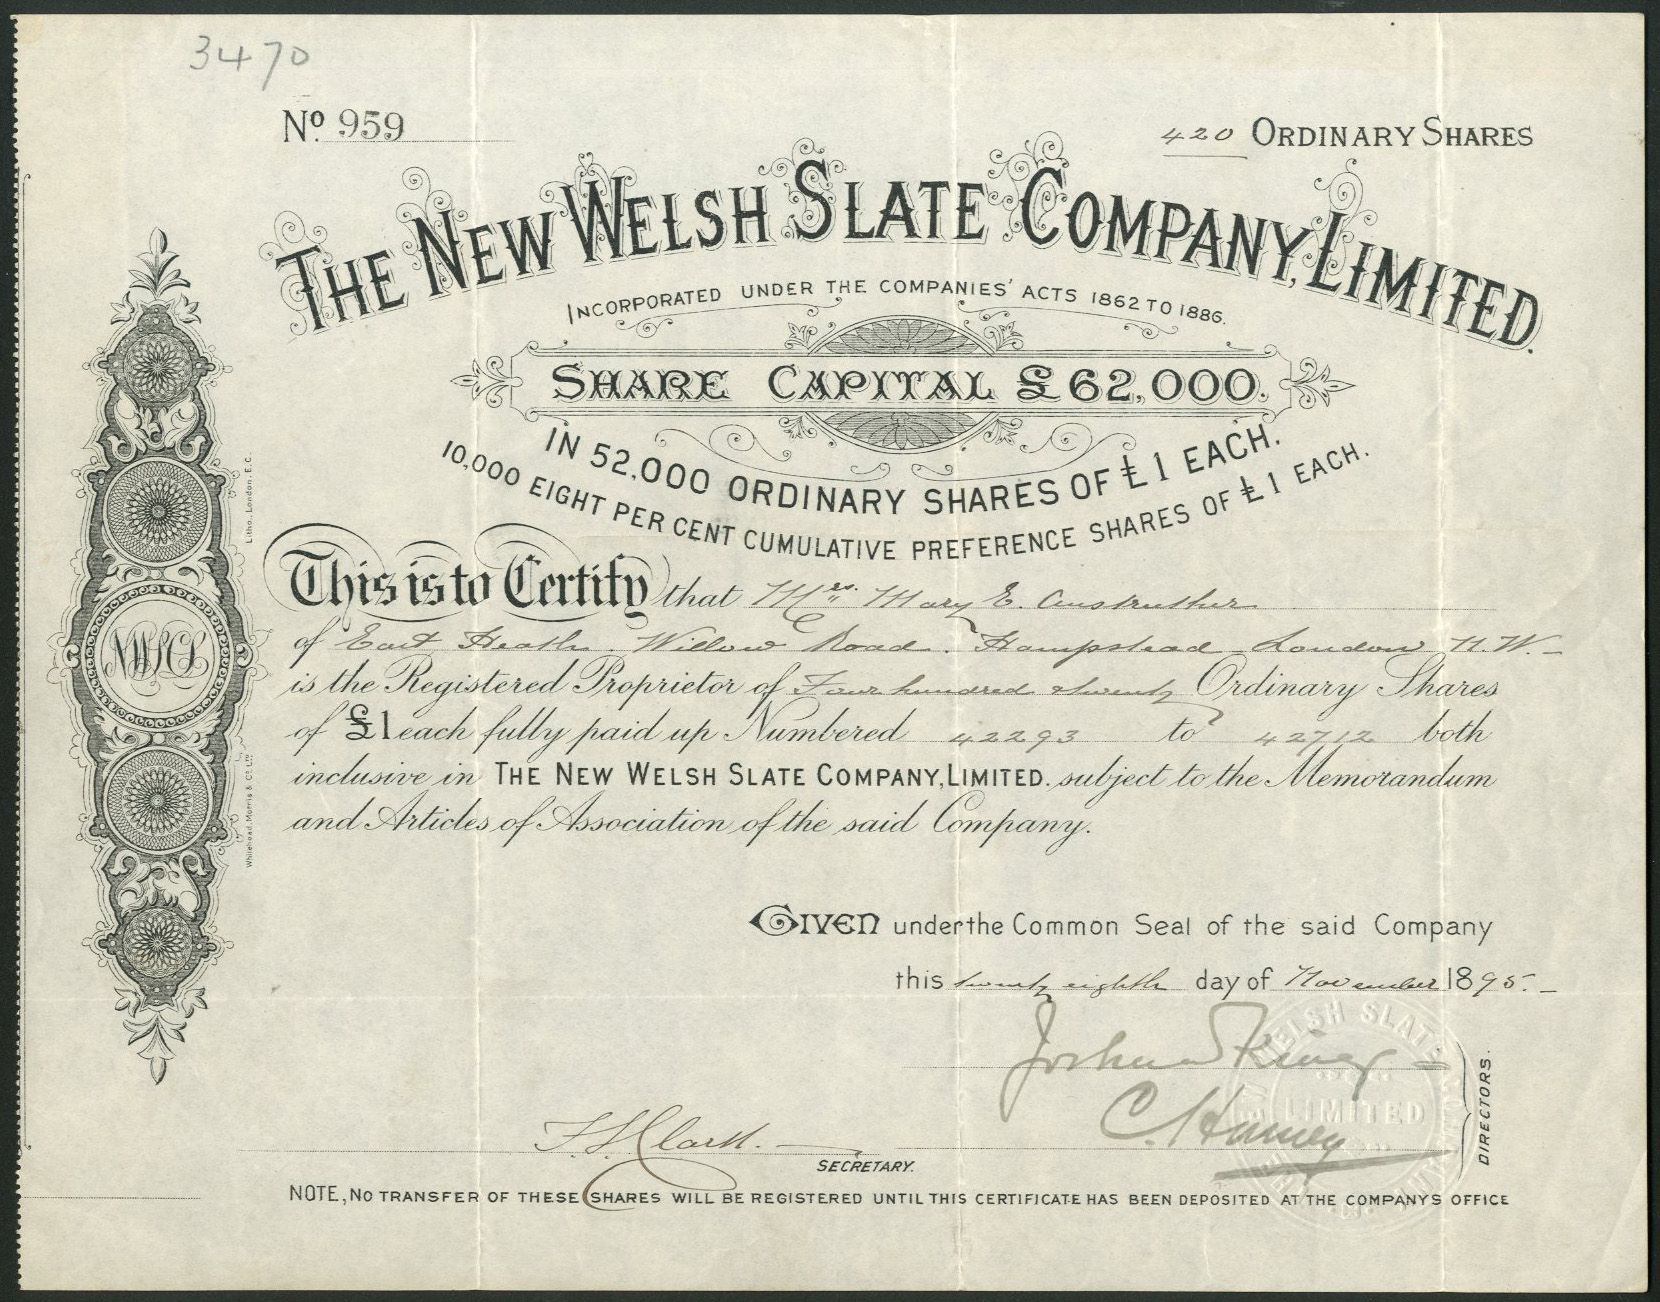 3470
No. 959
420 ORDINARY SHARES
THE NEW WELSH SLATE COMPANY, LIMITED.
INCORPORATED UNDER THE COMPANIES' ACTS 1862 TO 1886.
SHARE CAPITAL £62,000.
IN 52,000 ORDINARY SHARES OF £1 EACH.
10,000 EIGHT PER CENT CUMULATIVE PREFERENCE SHARES OF £1 EACH.
This is to Certify that Mrs. Mary E. Anstruther
of East Heath. Willow Road. Hampstead London N.W.
is the Registered Proprietor of Four hundred & twenty Ordinary Shares
of £1 each fully paid up Numbered 42293 to 42712 both
inclusive in THE NEW WELSH SLATE COMPANY, LIMITED. subject to the Memorandum
and Articles of Association of the said Company.
GIVEN under the Common Seal of the said Company
this twenty eighth day of November 1895.
DIRECTORS.
F. S. Clark.
SECRETARY.
NOTE, NO TRANSFER OF THESE SHARES WILL BE REGISTERED UNTIL THIS CERTIFICATE HAS BEEN DEPOSITED AT THE COMPANYS OFFICE
NWSCL
Whitehead, Morris & Co. Ltd. Litho., London, E.C.
NEW WELSH SLATE COMPANY
LIMITED